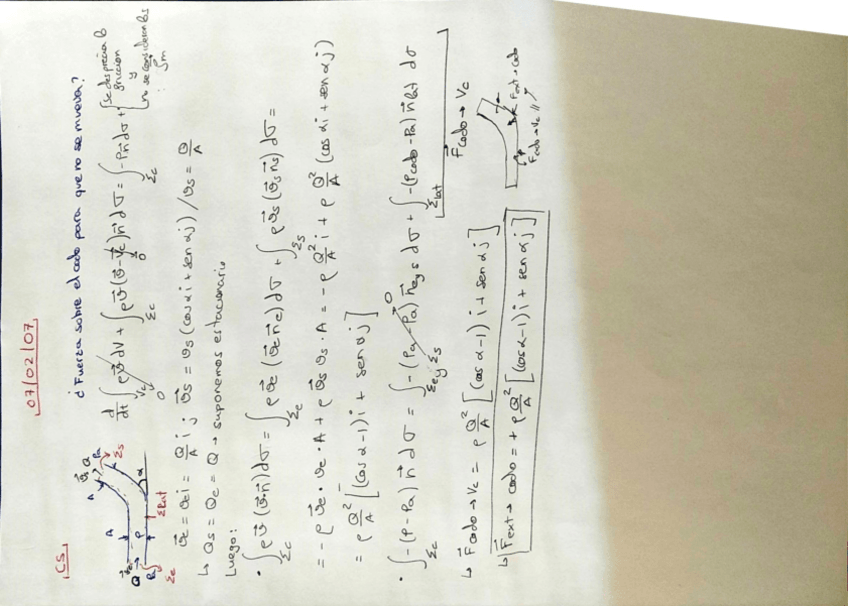 07/02/07
C5
¿Fuerza sobre el codo para que no se mueva?
d/dt ∫_Vc ρv⃗ dV + ∫_Σc ρv⃗(v⃗-v⃗c)n⃗ dσ = ∫_Σc -Pn⃗ dσ + {se desprecia la fricción y no se consideran las fm
0 0
v⃗e Q Pa Σe A P Σlat α A v⃗s Q Pa Σs
v⃗e = vei = Q/A i ; v⃗s = vs(cosαi + senαj) / vs = Q/A
↳ Qs = Qe = Q → suponemos estacionario
Luego:
• ∫_Σc ρv⃗(v⃗·n⃗)dσ = ∫_Σe ρv⃗e(v⃗e n⃗e)dσ + ∫_Σs ρv⃗s(v⃗s n⃗s)dσ =
= -ρv⃗e·ve·A + ρv⃗s vs·A = -ρ Q²/A i + ρ Q²/A (cosαi + senαj) =
= ρ Q²/A [(cosα-1)i + senαj]
• ∫_Σc -(P-Pa)n⃗ dσ = ∫_Σe y Σs -(Pa-Pa)n⃗e y s dσ + ∫_Σlat -(Pcodo-Pa)n⃗lat dσ
0
F⃗codo→Vc
↳ F⃗codo→Vc = ρ Q²/A [(cosα-1)i + senαj]
↳ F⃗ext→codo = + ρ Q²/A [(cosα-1)i + senαj]
Fext→codo
Fcodo→Vc